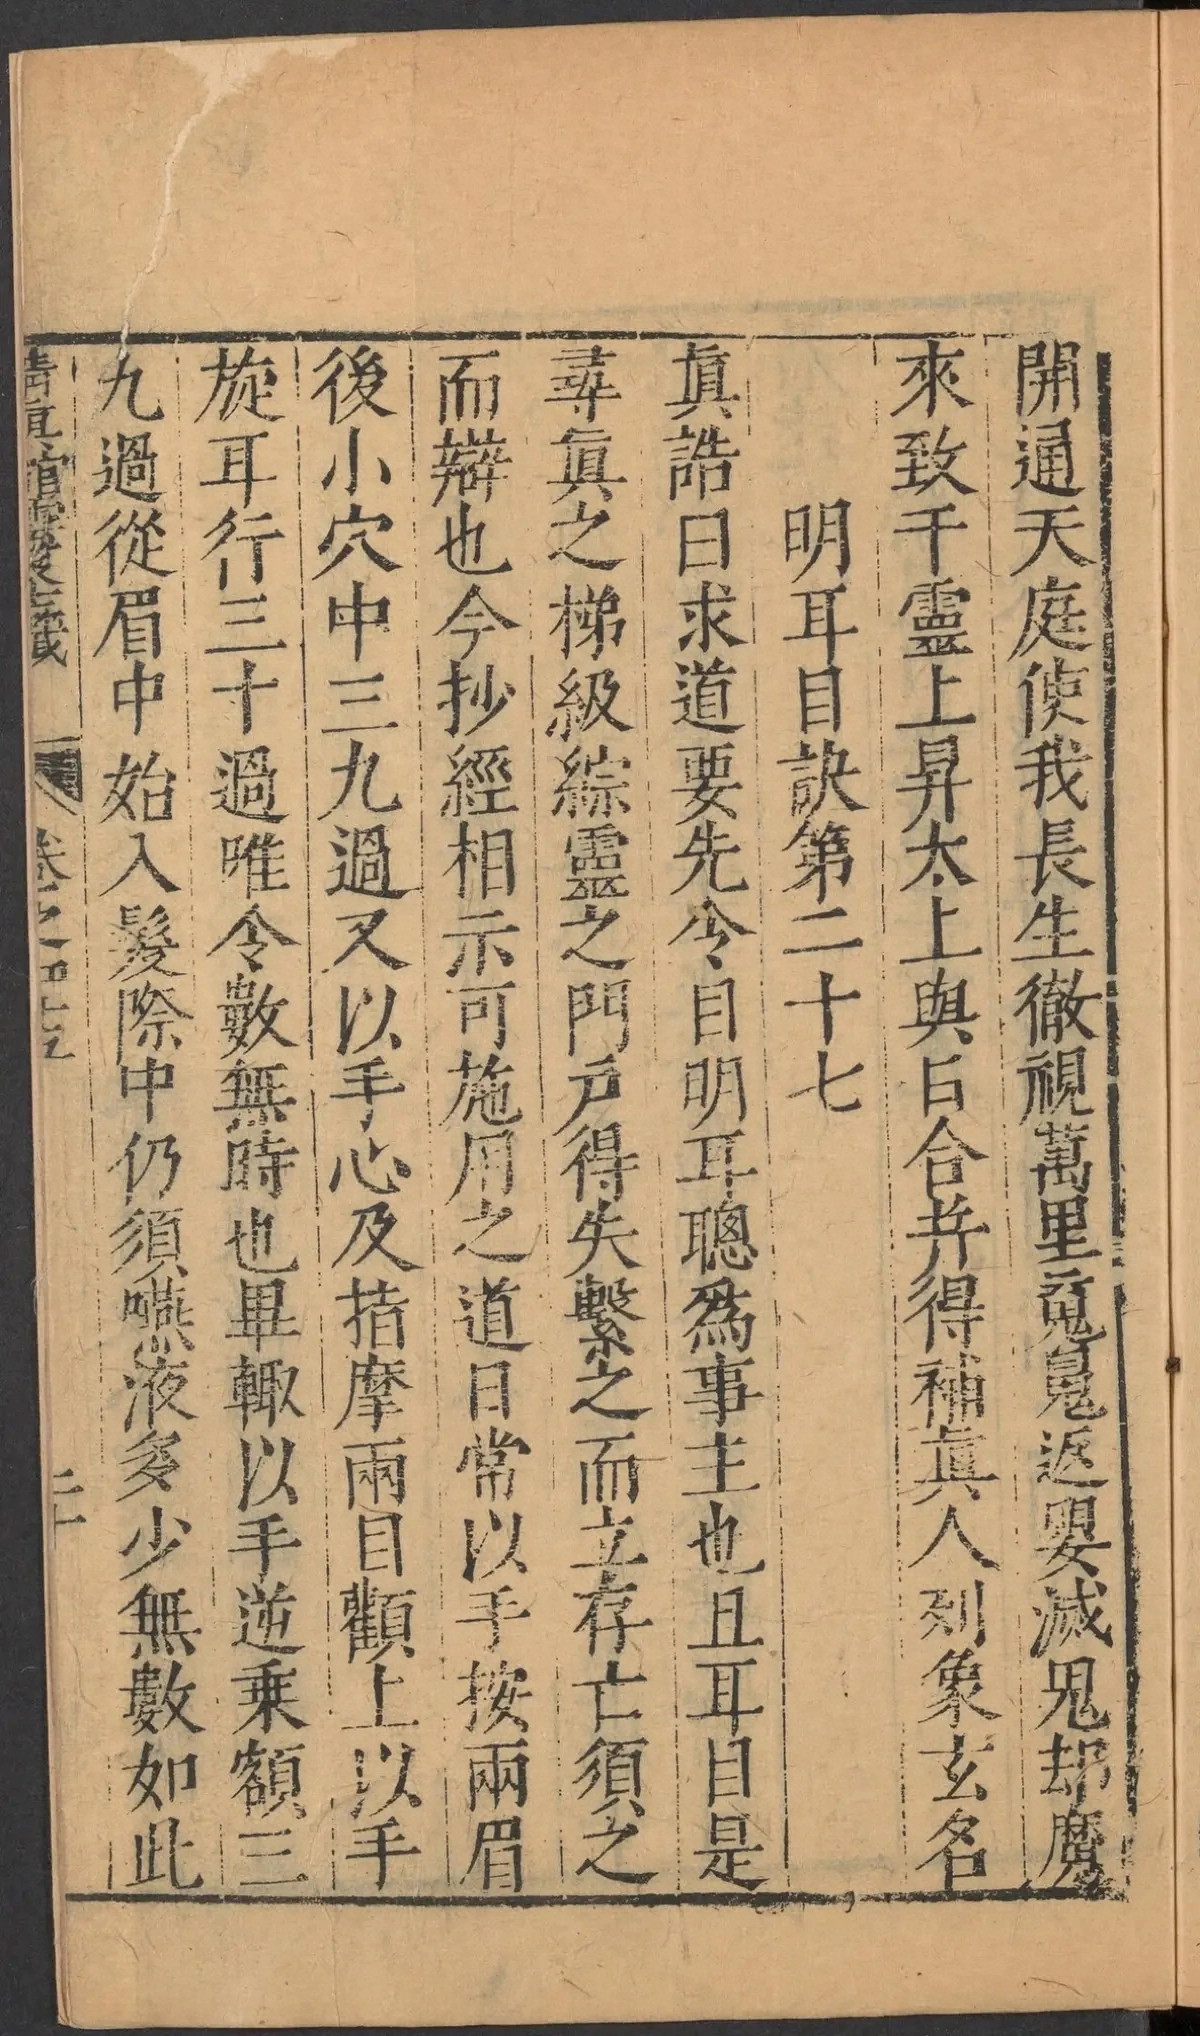 開通天庭使我長生徹視萬里䰟魄返嬰滅鬼却魔
來致千靈上昇太上與日合并得補眞人列象玄名
明耳目訣第二十七
眞誥曰求道要先令目明耳聰爲事主也且耳目是
尋眞之梯級綜靈之門戶得失繫之而立存亡須之
而辯也今抄經相示可施用之道日常以手按兩眉
後小穴中三九過又以手心及指摩兩目顴上以手
旋耳行三十過唯令數無時也畢輙以手逆乗額三
九過從眉中始入髮際中仍須嚥液多少無數如此
卷之
二十